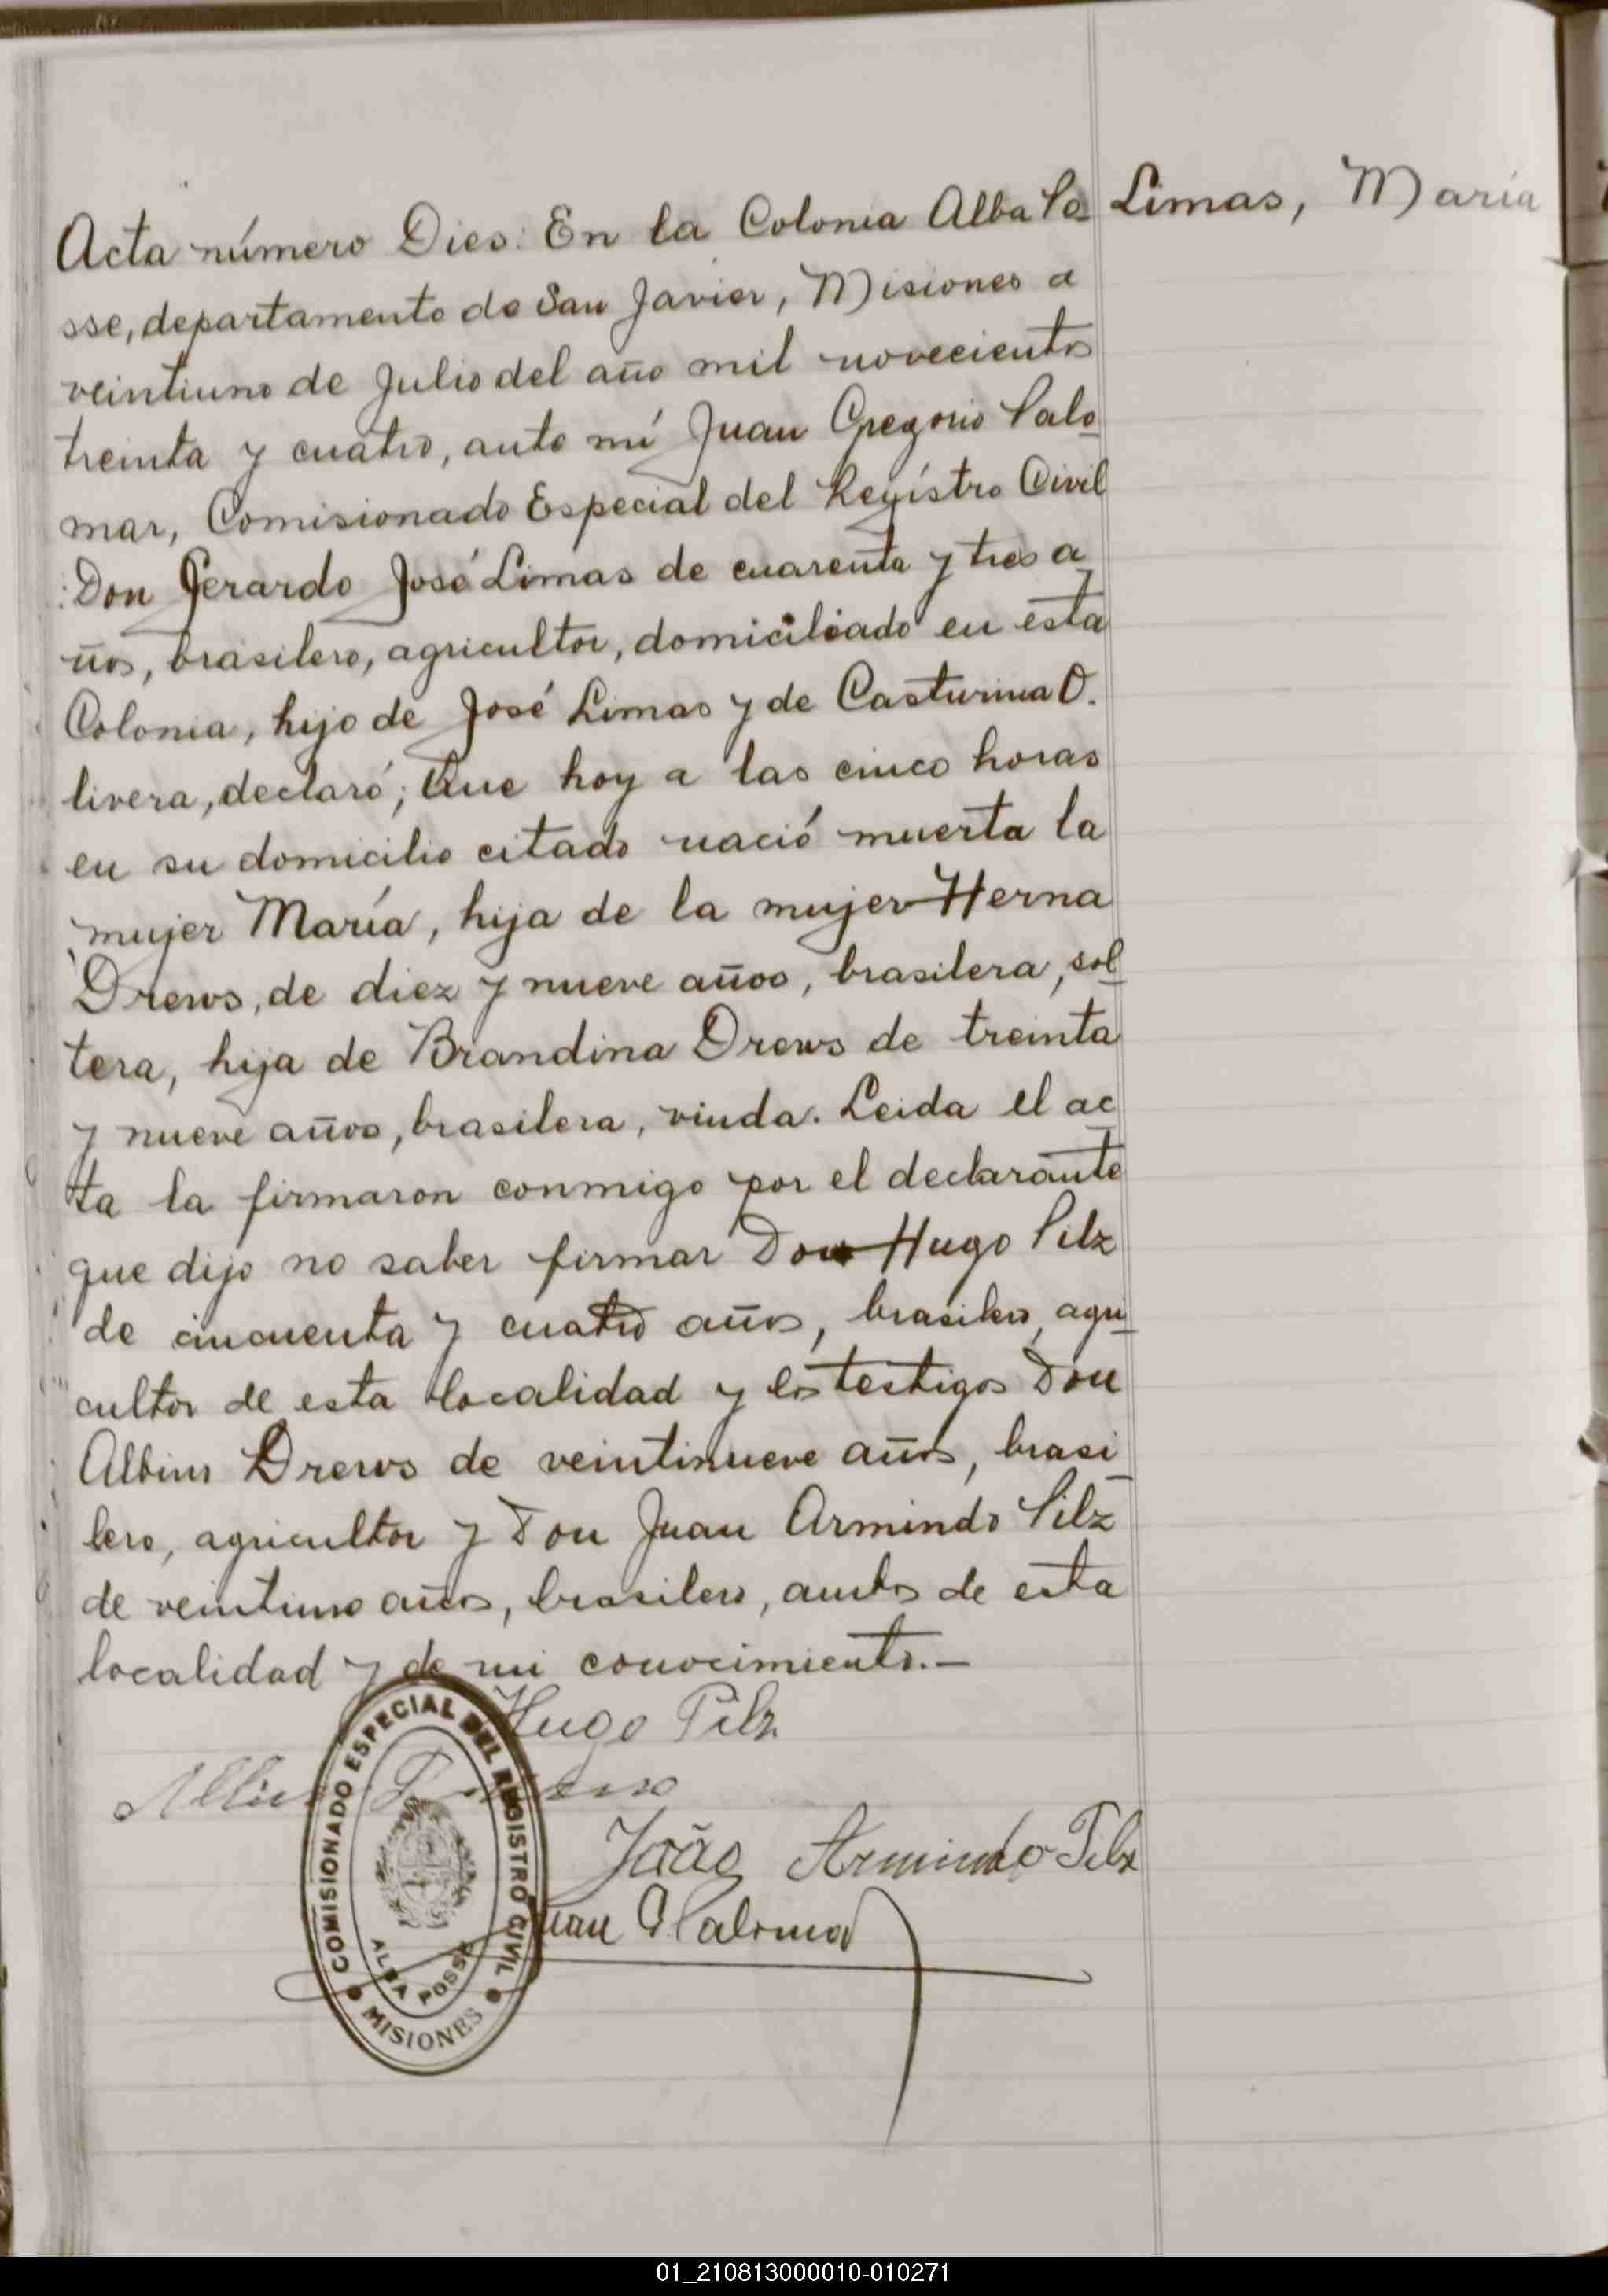 Limas, María
Acta número Dies: En la Colonia Alba Po
sse, departamento de San Javier, Misiones a
veintiuno de Julio del año mil novecientos
treinta y cuatro, ante mí Juan Gregorio Palo
mar, Comisionado Especial del Registro Civil
: Don Gerardo José Limas de cuarenta y tres a
ños, brasilero, agricultor, domiciliado en esta
Colonia, hijo de José Limas y de Casturina O.
livera, declaró; Que hoy a las cinco horas
en su domicilio citado nació muerta la
mujer María, hija de la mujer Herna
Drews, de diez y nueve años, brasilera, sol
tera, hija de Brandina Drews de treinta
y nueve años, brasilera, viuda. Leida el ac
ta la firmaron conmigo por el declarante
que dijo no saber firmar Don Hugo Pilz
de cincuenta y cuatro años, brasilero, agri
cultor de esta localidad y los testigos Don
Albino Drews de veintinueve años, brasi
lero, agricultor y Don Juan Armindo Pilz
de veintiuno años, brasilero, ambos de esta
localidad y de mi conocimiento.—
Hugo Pilz
João Armindo Pilz
Juan G Palomar
COMISIONADO ESPECIAL DEL REGISTRO CIVIL
ALBA POSSE
MISIONES
01_210813000010-010271